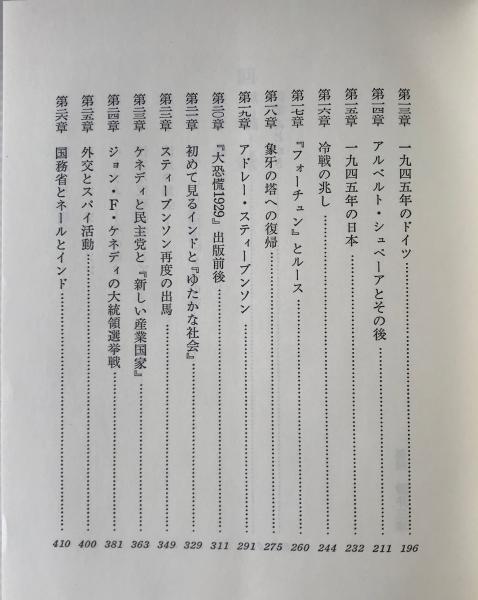 第一三章 一九四五年のドイツ 196
第一四章 アルベルト・シュペーアとその後 211
第一五章 一九四五年の日本 232
第一六章 冷戦の兆し 244
第一七章 『フォーチュン』とルース 260
第一八章 象牙の塔への復帰 275
第一九章 アドレー・スティーブンソン 291
第二〇章 『大恐慌1929』出版前後 311
第二一章 初めて見るインドと『ゆたかな社会』 329
第二二章 スティーブンソン再度の出馬 349
第二三章 ケネディと民主党と『新しい産業国家』 363
第二四章 ジョン・F・ケネディの大統領選挙戦 381
第二五章 外交とスパイ活動 400
第二六章 国務省とネールとインド 410